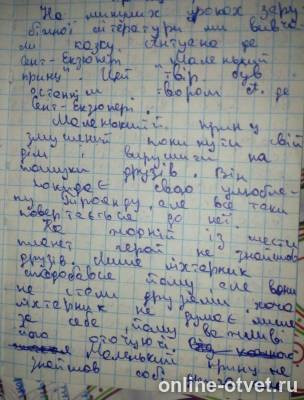 На минулих уроках зару
біжної літератури ми вивча
ли казку Антуана де
Сент-Екзюпері "Маленький
принц". Цей твір був
останнім твором А. де
Сент-Екзюпері.
Маленький принц
змушений покинути свій
дім і вирушити на
пошуки друзів. Він
покидає свою улюбле-
ну троянду, але все таки
повертається до неї.
На жодній із шести
планет герой не знайшов
друзів. Лише ліхтарник
сподобався йому, але вони
не стали друзями, хоча
ліхтарник не думає лише
за себе, йому важливі
його оточуючі
Маленький принц не
знайшов собі
online-otvet.ru